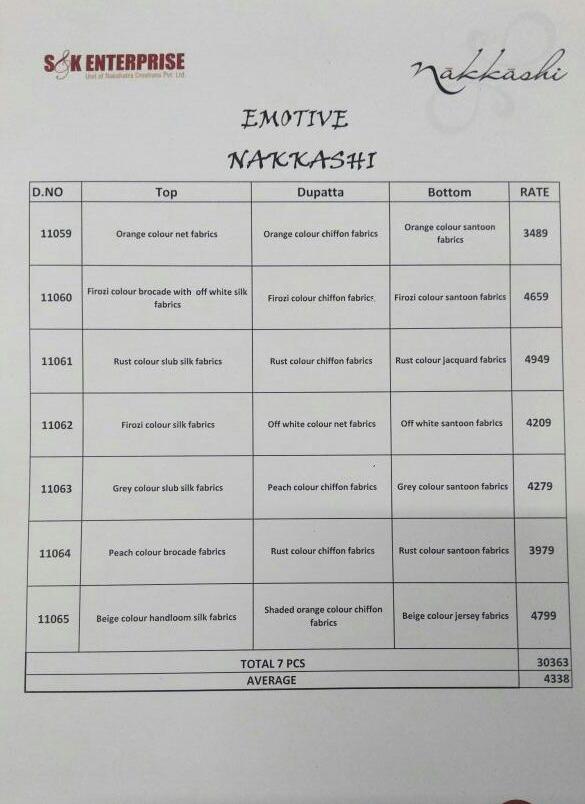 S&K ENTERPRISE
Unit of Nakshatra Creations Pvt. Ltd.
Nakkashi
EMOTIVE
NAKKASHI
D.NO Top Dupatta Bottom RATE
11059 Orange colour net fabrics Orange colour chiffon fabrics Orange colour santoon fabrics 3489
11060 Firozi colour brocade with off white silk fabrics Firozi colour chiffon fabrics. Firozi colour santoon fabrics 4659
11061 Rust colour slub silk fabrics Rust colour chiffon fabrics Rust colour jacquard fabrics 4949
11062 Firozi colour silk fabrics Off white colour net fabrics Off white santoon fabrics 4209
11063 Grey colour slub silk fabrics Peach colour chiffon fabrics Grey colour santoon fabrics 4279
11064 Peach colour brocade fabrics Rust colour chiffon fabrics Rust colour santoon fabrics 3979
11065 Beige colour handloom silk fabrics Shaded orange colour chiffon fabrics Beige colour jersey fabrics 4799
TOTAL 7 PCS 30363
AVERAGE 4338